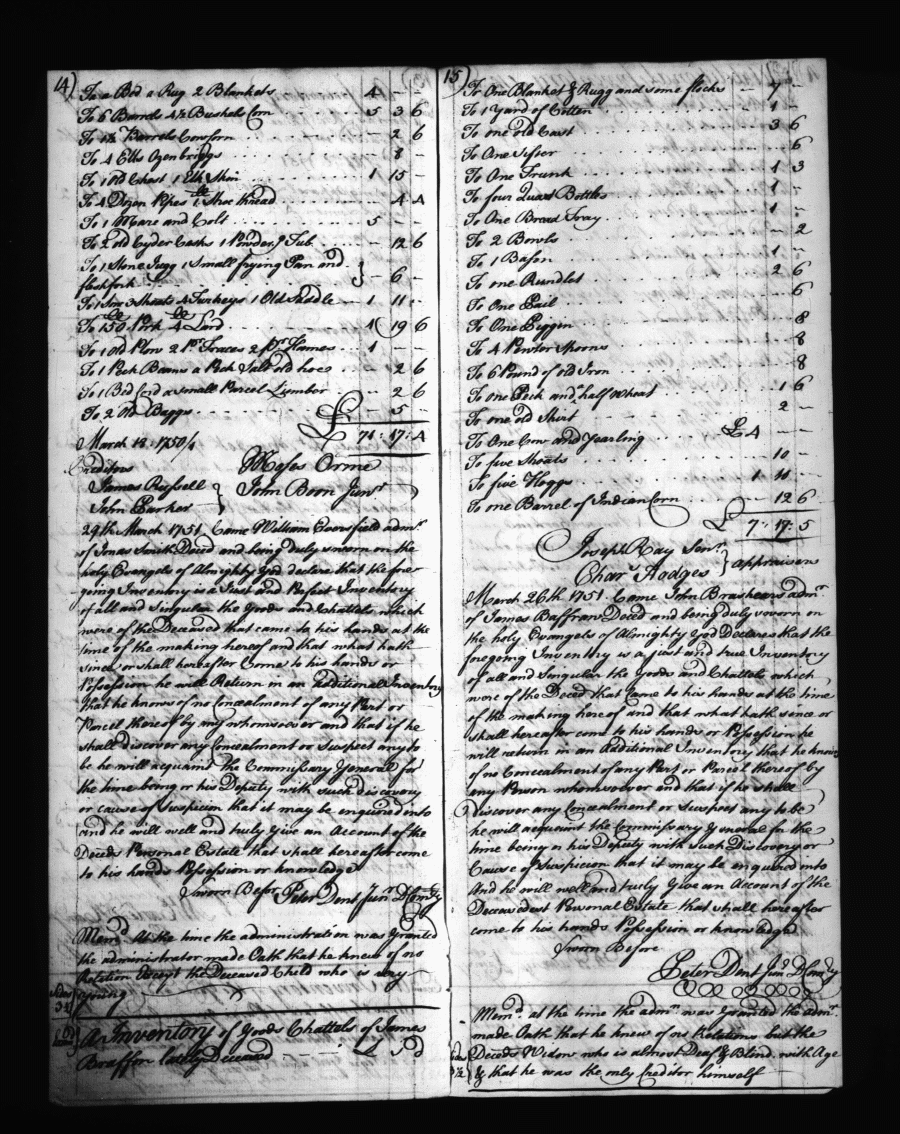 14)
To a Bed a Rug 2 Blankets 4 - -
To 6 Barrels 4½ Bushels Corn 5 3 6
To 1½ Barrels Corn - 2 6
To 4 Ells Ozenbriggs - 8 -
To 1 Old Chest 1 1 15 -
To 4 Dozen Pipes 1 lb Shoe thread - 4 4
To 1 Mare and Colt 5 - -
To 2 old Cyder Casks 1 Powder.g Tub - 12 6
To 1 Stone Jugg 1 Small frying Pan and
fleshfork - 6 -
To 1 Sow 3 Shoats 4 Turkeys 1 Old Saddle 1 11 -
To 150 lb Pork 4 lb Lard 1 19 6
To 1 Old Plow 2 pr Traces 2 pr Hames 1 - -
To 1 Peck Beans a Peck Salt old hoe - 2 6
To 1 Bed Cord a Small Parcel Lumber - 2 6
To 2 Old Baggs - 5 -
£ 71: 17: 4
March 13. 1750/1
Creditors Moses Orme
James Russell } John Boon Junr
John Barker
29th March 1751. Came William Eversfield admr.
of Jonas Smith Deced and being duly sworn on the
holy Evangels of Almighty God declare that the fore
going Inventory is a Just and Perfect Inventory
of all and Singular the Goods and Chattels which
were of the Deceased that came to his hands at the
time of the making hereof and that what hath
since or shall hereafter Come to his hands or
Possession he will Return in an additional Inventory
that he knows of no Concealment of any Part or
Parcel thereof by any whomsoever and that if he
shall discover any Concealment or Suspect any to
be he will acquaint the Commissary General for
the time being or his Deputy with such discovery
or cause of Suspicion that it may be enquired into
and he will well and truly Give an Account of the
Deceds Personal Estate that shall hereafter come
to his hands Possession or knowledge
Sworn Before Peter Dent Junr D Comry
Memd At the time the administration was Granted
the administrator made Oath that he knew of no
Relation Except the Deceased Child who is very
young
An Inventory of Goods Chattels of James
Braffon lately Deceased £ S D
15)
To One Blanket & Rugg and some flocks - 7 -
To 1 Yard of Cotten - 1 -
To one old Coat - 3 6
To One Sifter 6
To One Trunk 1 3
To four Quart Bottles 1 -
To One Bread Tray 1 -
To 2 Bowls 2
To 1 Bason 1 -
To one Rundlet 2 6
To One Pail 6
To One Piggin
To 4 Pewter Spoons 8
To 6 Pound of old Iron 8
To one Peck and half Wheat 8
To one old Shirt 1 6
To One Cow and Yearling 2 -
To five Shoats £ 4
To five Hoggs 10 -
To one Barrel of Indian Corn 1 10 -
12 6
£ 7: 17: 5
Joseph Ray Senr. } appraisers
Chars Hodges
March 26th 1751. Came John Brashears admr.
of James Baffran Deced and being duly sworn on
the holy Evangels of Almighty God Declares that the
foregoing Inventory is a just and true Inventory
of all and Singular the Goods and Chattels which
were of the Deced that Came to his hands at the time
of the making hereof and that what hath since or
shall hereafter come to his hands or Possession he
will return in an Additional Inventory that he knows
of no Concealment of any Part or Parcel thereof by
any Person whomsoever and that if he shall
discover any Concealment or Suspect any to be
he will acquaint the Commissary General for the
time being or his Deputy with such Discovery or
Cause of Suspicion that it may be enquired into
And he will well and truly Give an Account of the
Deceasedest Personal Estate that shall hereafter
come to his hands Possession or knowledge
Sworn Before
Peter Dent Junr D Comry
Memd. at the time the admn. was Granted the admr.
made Oath that he knew of no Relations but the
Deceds Widow who is almost Deaf & Blind with Age
& that he was the only Creditor himself